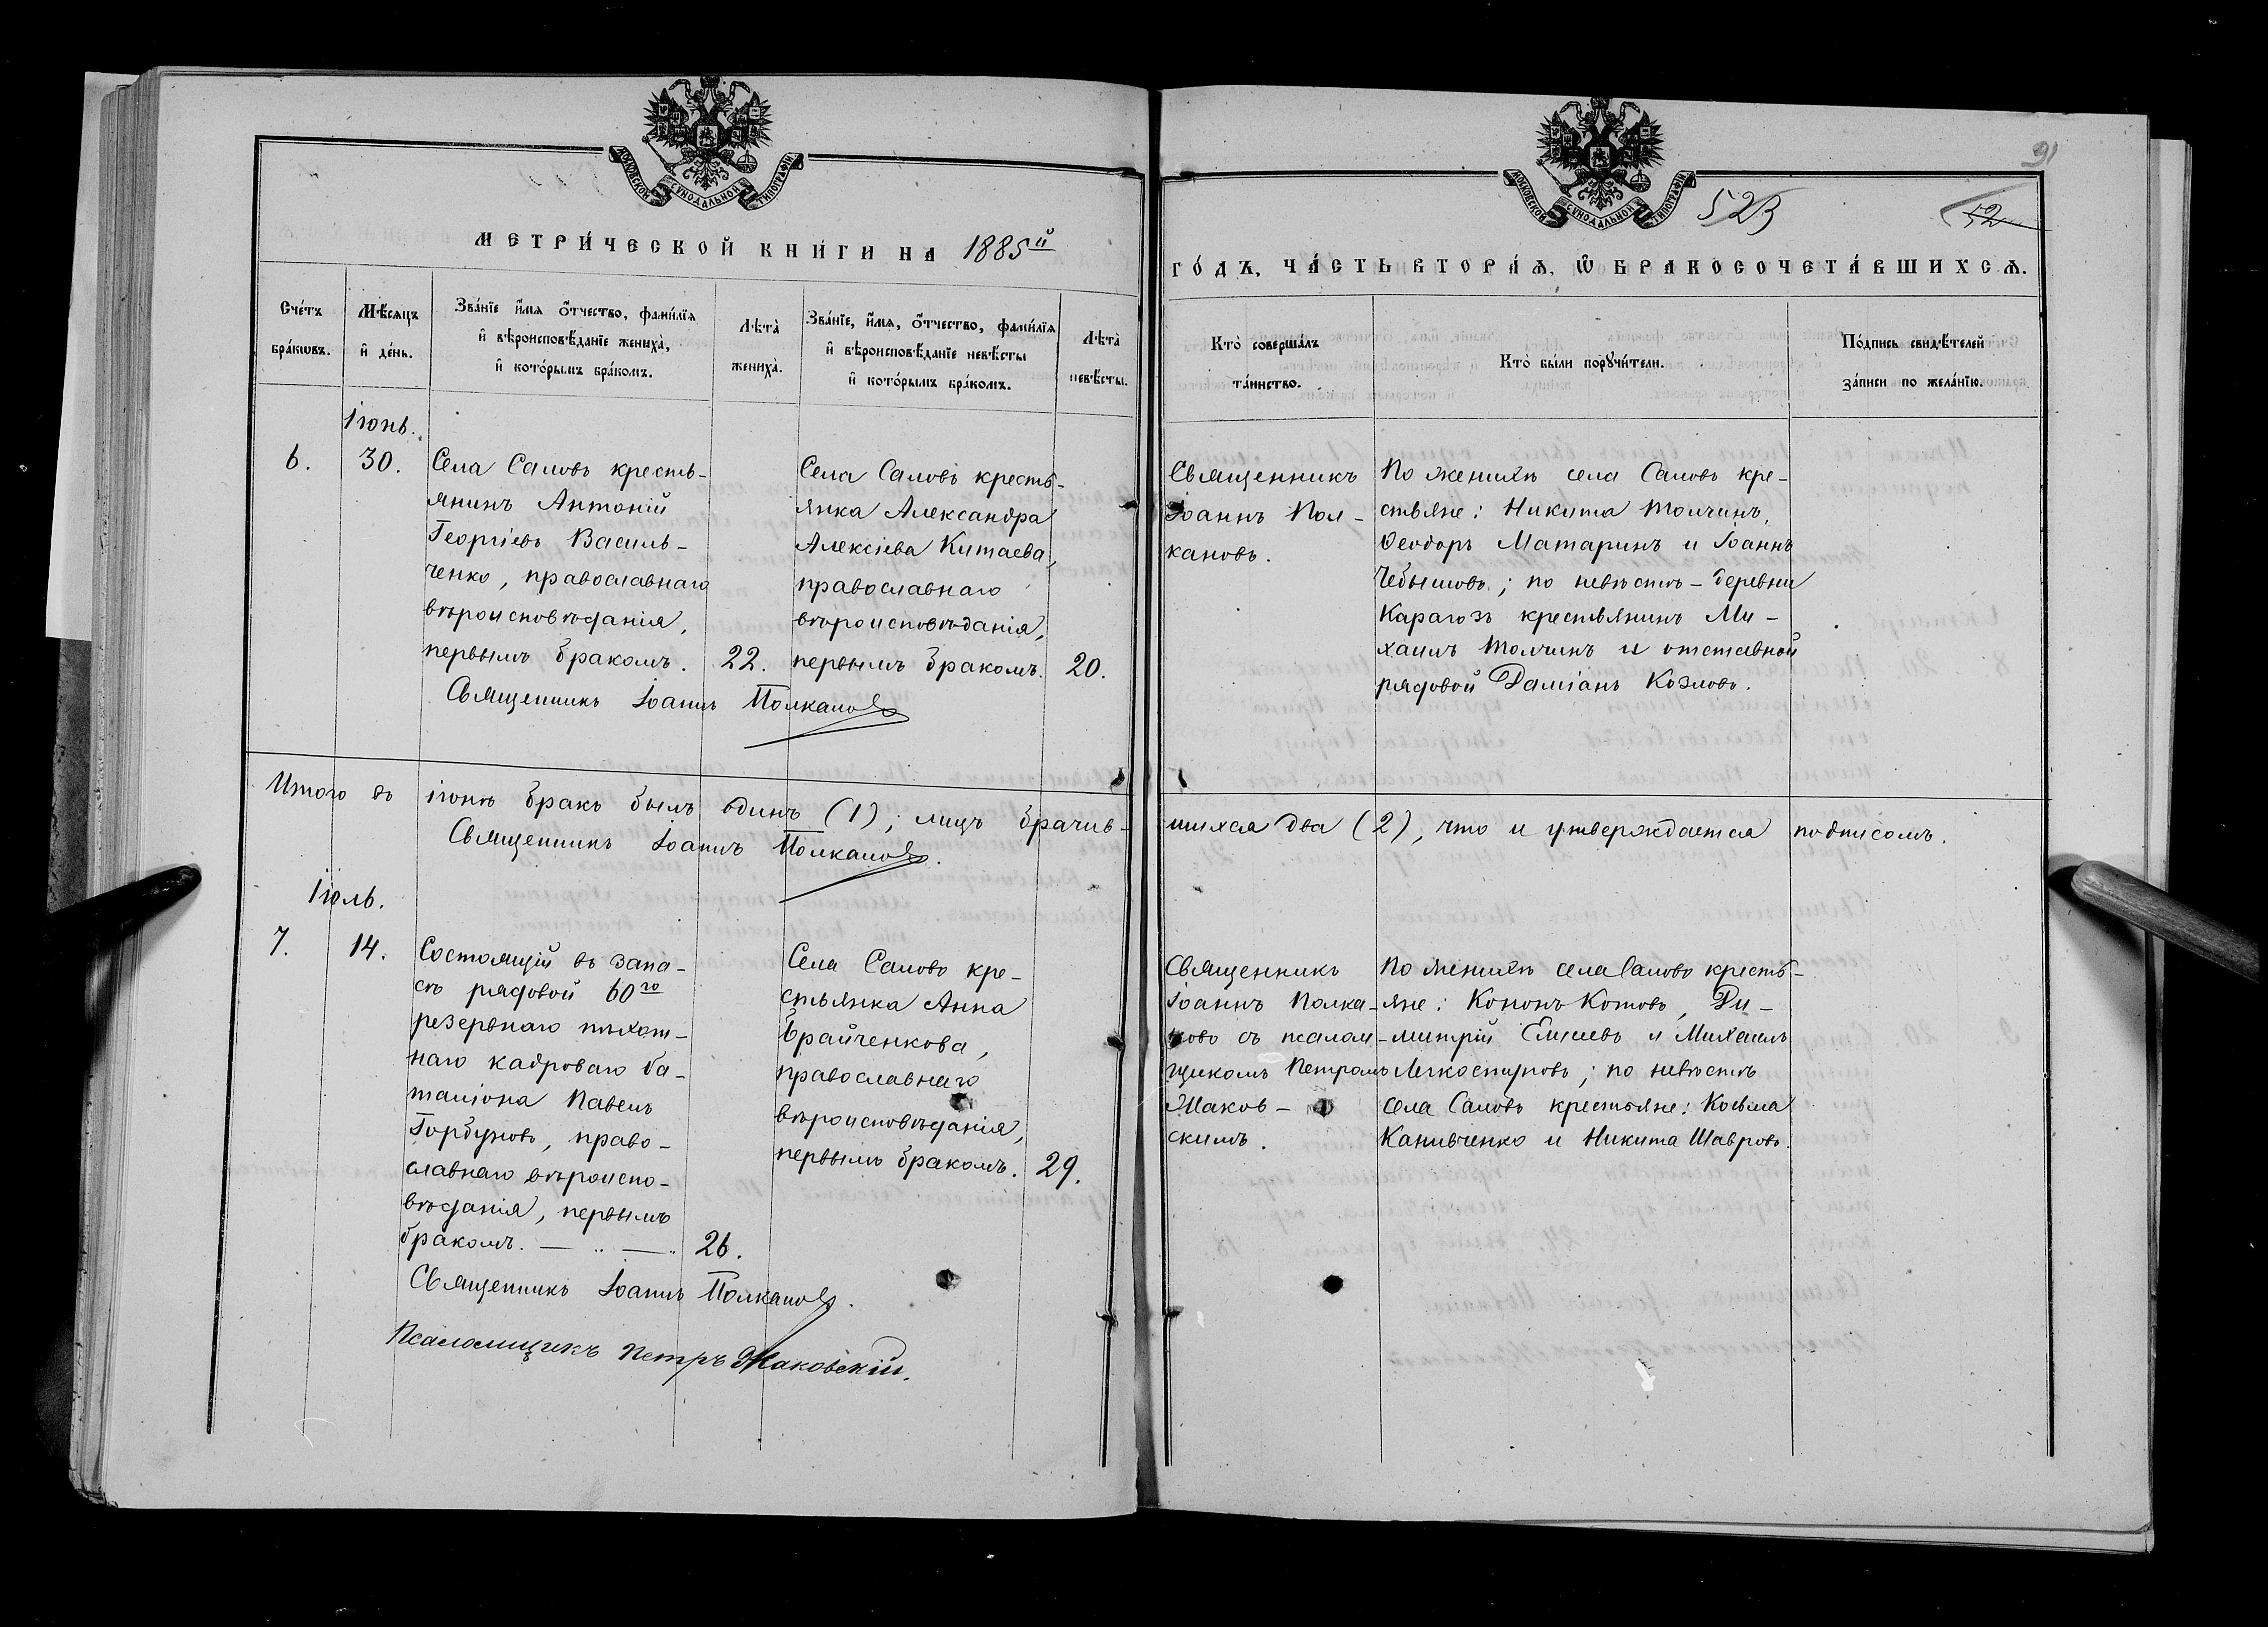 МОСКОВСКОЙ СУНОДАЛЬНОЙ ТИПОГРАФІИ
МЕТРИ́ЧЕСКОЙ КНИ́ГИ НА 1885й
Сче́тъ бра́кωвъ.
Мѣ́сяцъ и҆ де́нь.
Зва́нїе и҆́мѧ ѻ҆́тчество, фами́лїѧ
и҆ вѣроисповѣ́данїе жениха̀,
и҆ кото́рымъ бра́комъ.
Лѣта̀ жениха̀.
Зва́нїе, и҆́мѧ, ѻ҆́тчество, фами́лїѧ
и҆ вѣроисповѣ́данїе невѣ́сты
и҆ кото́рымъ бра́комъ.
Лѣта̀ невѣ́сты.
Іюнь.
6.
30.
Села Саловъ кресть-
янинъ Антоній
Георгіевъ Василь-
ченко, православнаго
вѣроисповѣданія,
первымъ бракомъ.
22.
Села Саловъ кресть-
янка Александра
Алексіева Китаева,
православнаго
вѣроисповѣданія,
первымъ бракомъ.
20.
Священникъ Іоаннъ Полкановъ
Итого въ іюнѣ бракъ былъ одинъ (1); лицъ брачив-
Священникъ Іоаннъ Полкановъ.
Іюль.
7.
14.
Состоящій въ запа-
сѣ рядовой 60го
резервнаго пѣхот-
наго кадроваго ба-
таліона Павелъ
Горбуновъ, право-
славнаго вѣроиспо-
вѣданія, первымъ
бракомъ. — „ —
26.
Села Салово кре-
стьянка Анна
Брайченкова,
православнаго
вѣроисповѣданія,
первымъ бракомъ.
29.
Священникъ Іоаннъ Полкановъ.
Псаломщикъ Петръ Жаковскій.
91
МОСКОВСКОЙ СУНОДАЛЬНОЙ ТИПОГРАФІИ
523
52
ГО́ДЪ, ЧА́СТЬ ВТОРА́Ѧ, Ѡ҆ БРАКОСОЧЕТА́ВШИХСѦ.
Кто̀ соверша́лъ
та́инство.
Кто̀ бы́ли порꙋчи́тели.
По́дпись свидѣ́телей
за́писи по жела́нїю.
Священникъ
Іоаннъ Пол-
кановъ.
По женихѣ села Саловъ кре-
стьяне: Никита Толчинъ,
Ѳеодоръ Матаринъ и Іоаннъ
Чебышовъ; по невѣстѣ - деревни
Карагозъ крестьянинъ Ми-
хаилъ Толчинъ и отставной
рядовой Даміанъ Козловъ.
шихся два (2), что и утверждается подписомъ.
Священникъ
Іоаннъ Полка-
новъ съ псалом-
щикомъ Петромъ
Жаков-
скимъ.
По женихѣ села Салово кресть-
яне: Кононъ Котовъ, Ди-
митрій Елисеевъ и Михаилъ
Легкоступовъ; по невѣстѣ
села Саловъ крестьяне: Косьма
Канивченко и Никита Шавровъ.